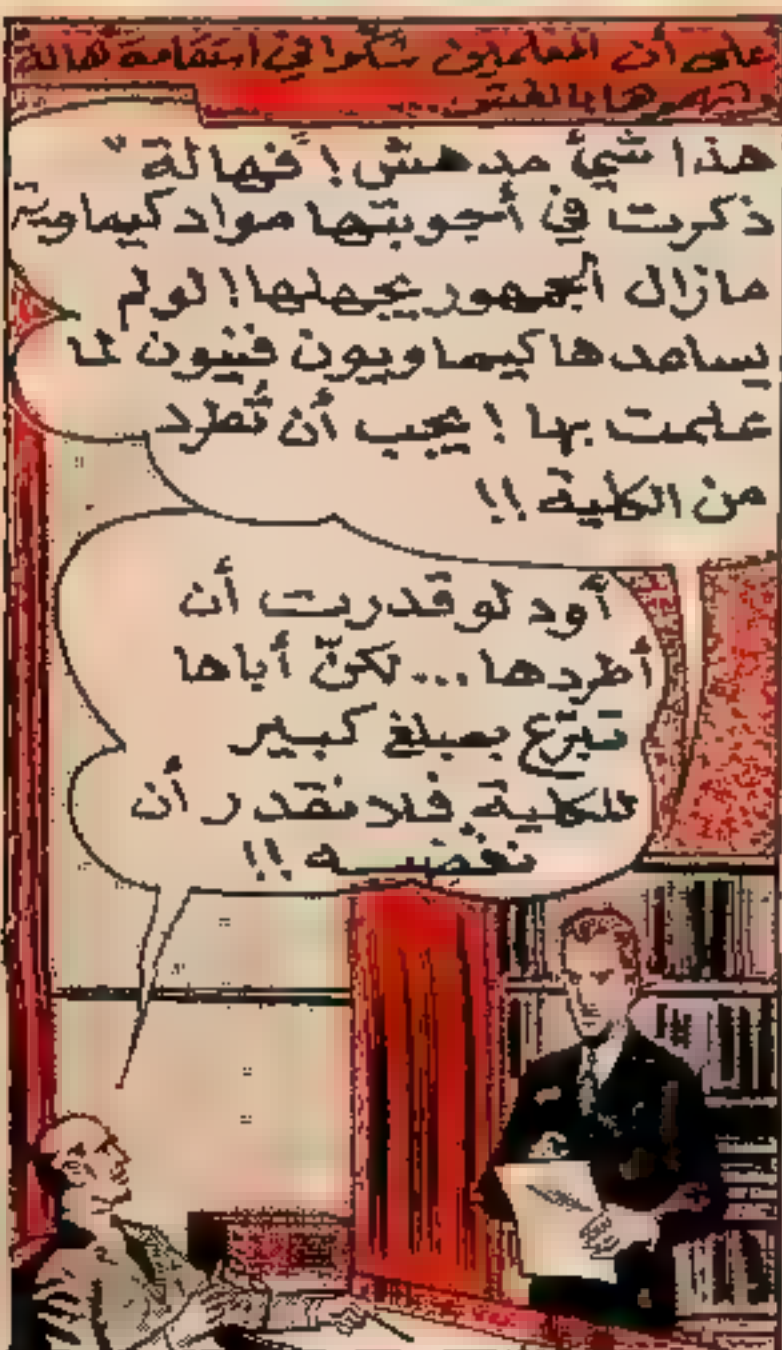 على أن المعلمين شكوا في استقامة هالة
واتهموها بالغش...
هذا شيئ مدهش! فهالة
ذكرت في أجوبتها مواد كيماوية
مازال الجمهور يجهلها! لو لم
يساعدها كيماويون فنيون لما
علمت بها! يجب أن تُطرد
من الكلية!!
أود لو قدرت أن
أطردها... لكنّ أباها
تبرّع بمبلغ كبير
للكلية فلا نقدر أن
نغضبه!!